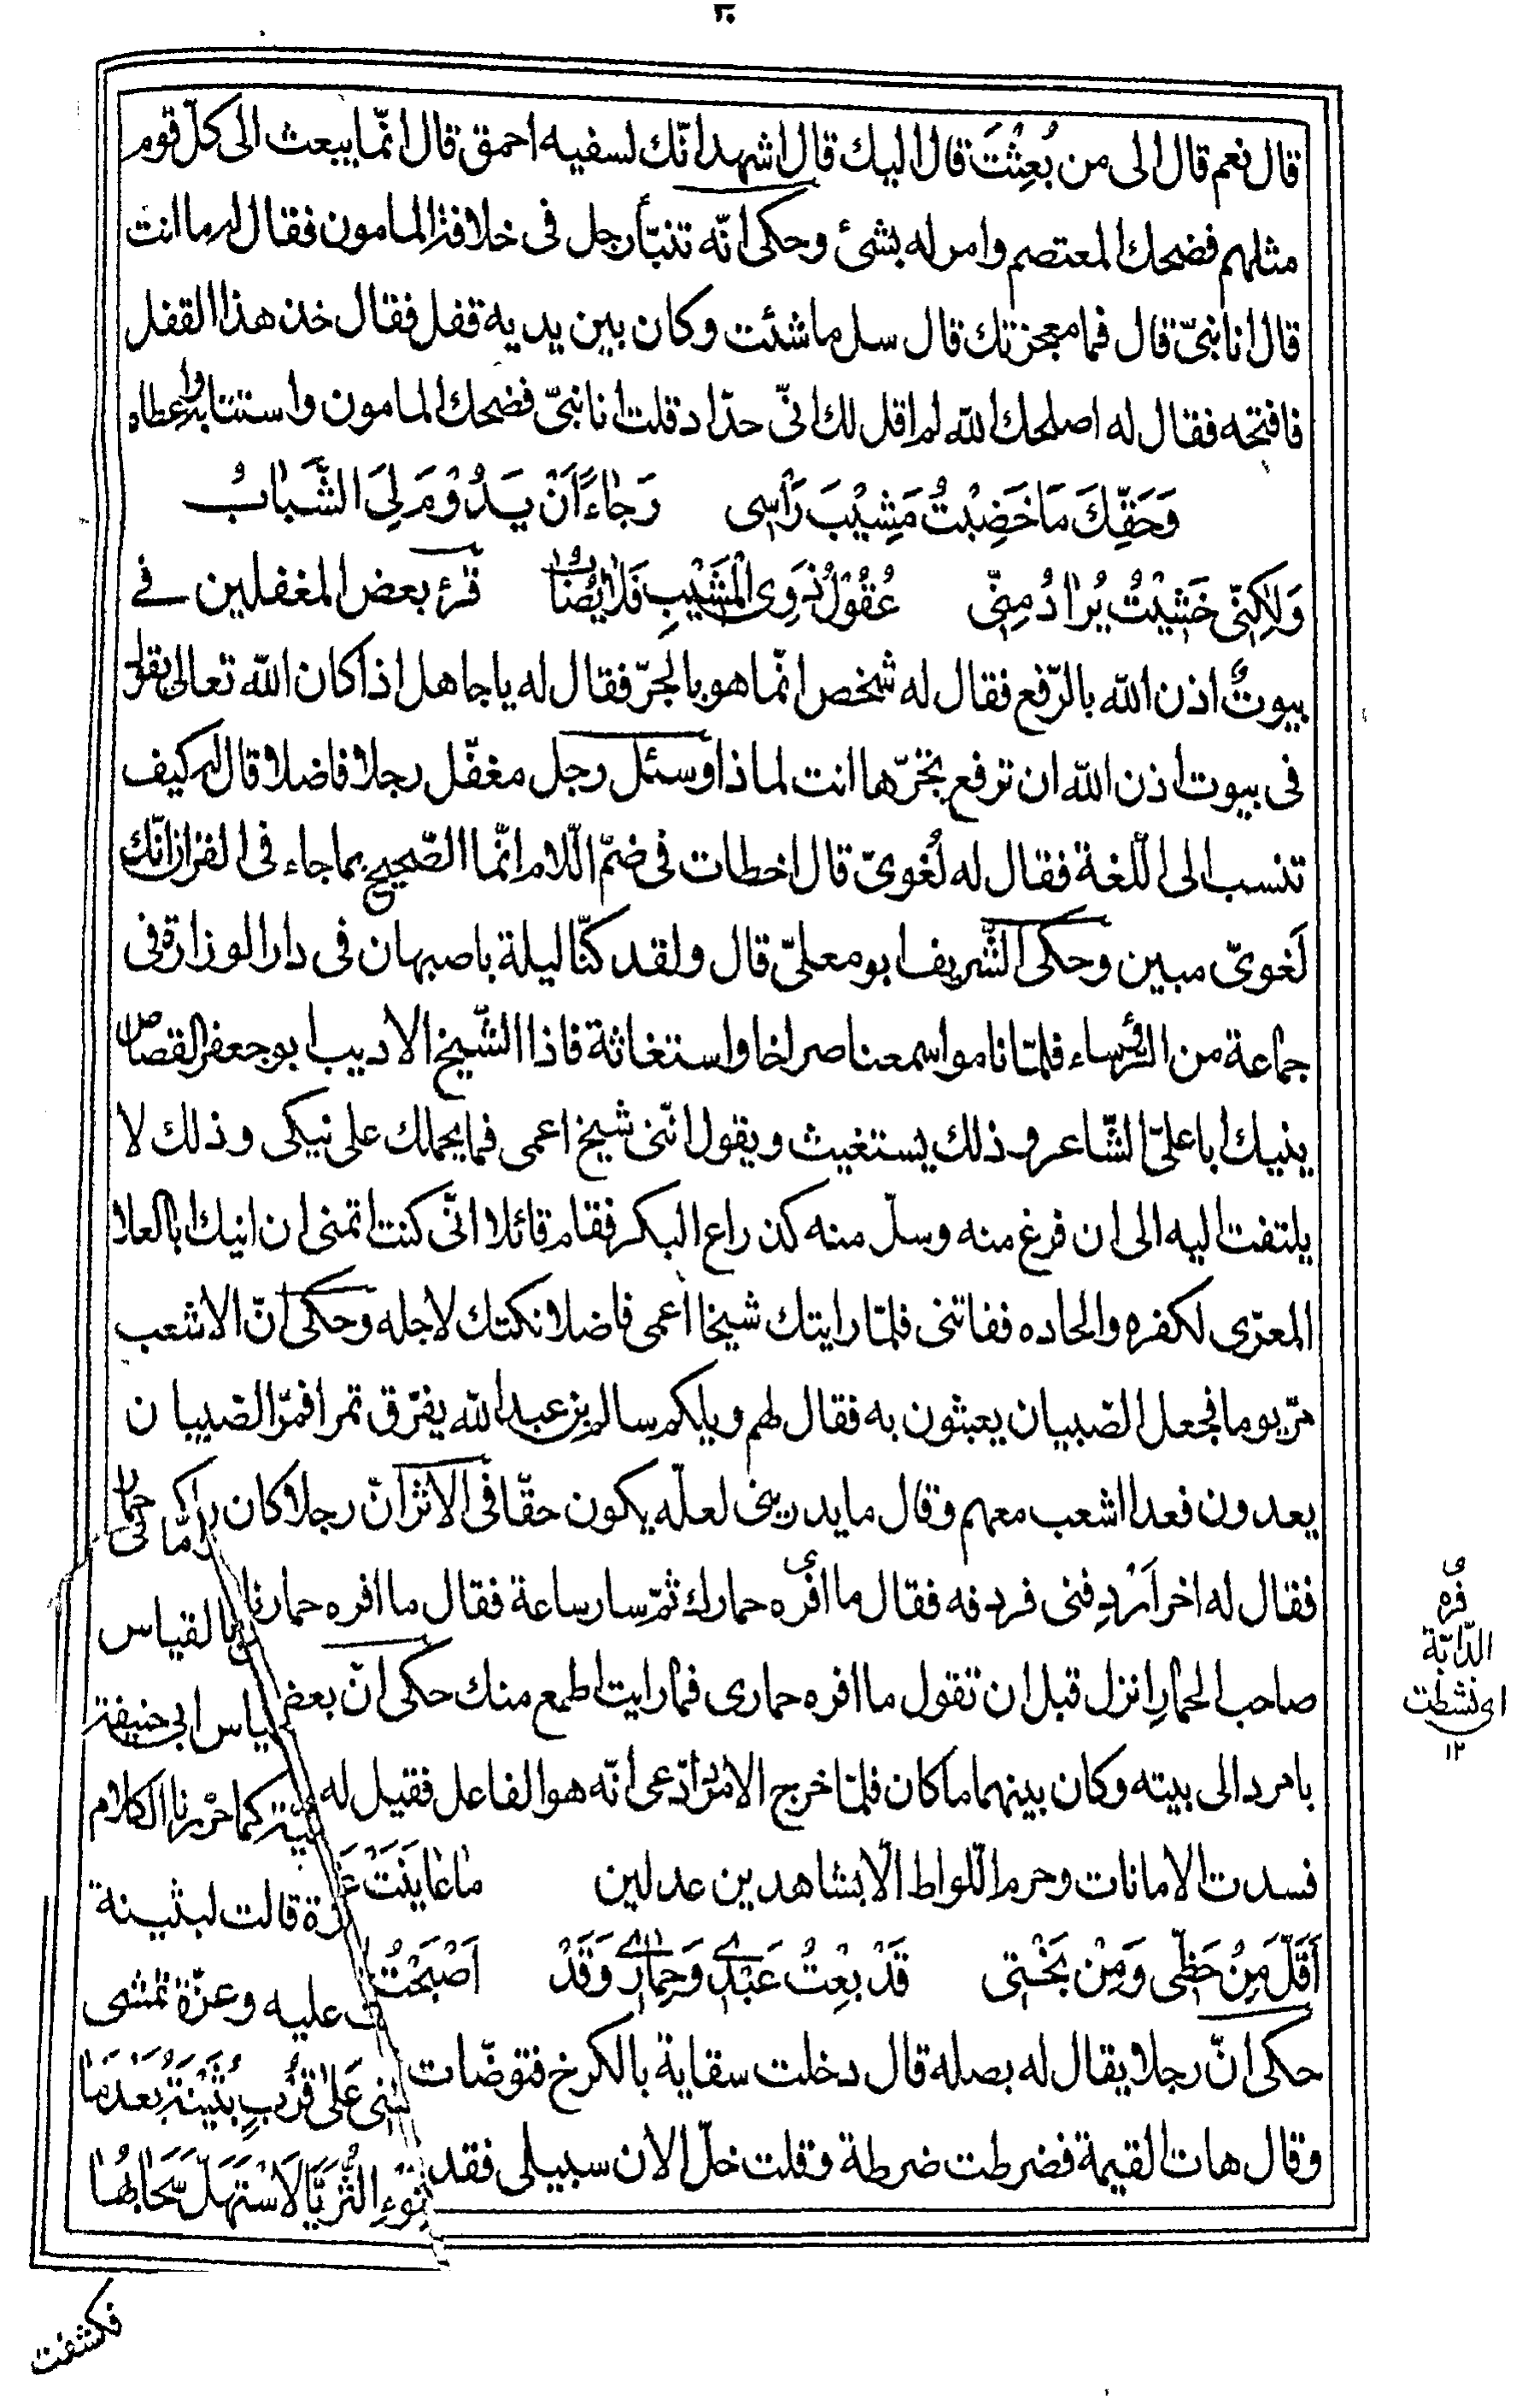 ٣٠
قال نعم قال الى من بُعِثْتَ قال اليك قال اشهد انّك لسفيه احمق قال انّما يبعث الى كلّ قوم
مثلهم فضحك المعتصم وامر له بشئ وحكى انّه تنبّأ رجل فى خلافة المامون فقال له ما انت
قال انا نبىّ قال فما معجزتك قال سل ما شئت وكان بين يديه قفل فقال خذ هذا القفل
فافتحه فقال له اصلحك اللّه لم اقل لك انّى حدّاد قلت انا نبىّ فضحك المامون واستتابه واعطاه
وَحَقِّكَ مَا خَضِبْتُ مَشِيْبَ رَاْسِى رَجٰاءً اَنْ يَدُوْمَ لِىَ الشَّبٰابُ
وَلٰكِنّى خَشِيْتُ يُرٰادُ مِنّى عُقُوْلُ ذَوِى الْمَشْيْبِ فَلٰا يُصٰابُوا قرئ بعض المغفلين فے
بيوتٌ اذن اللّه بالرّفع فقال له شخص انّما هو بالجرّ فقال له يا جاهل اذا كان اللّه تعالى يقول
فى بيوت اذن اللّه ان ترفع تجرّها انت لماذا وسئل رجل مغفّل رجلا فاضلا قال له كيف
تنسب الى اللّغة فقال له لُغوىّ قال اخطات فى ضمّ اللّام انّما الصّحيح بما جاء فى القران انّك
لَغوىّ مبين وحكى الشّريف ابو معلىّ قال ولقد كنّا ليلة باصبهان فى دار الوزارة فى
جماعة من الرّؤساء فلمّا ناموا سمعنا صراخا واستغاثة فاذا الشّيخ الاديب ابو جعفر القصاص
ينيك ابا علىّ الشّاعر و ذلك يستغيث ويقول انّنى شيخ اعمى فما يحملك على نيكى وذلك لا
يلتفت اليه الى ان فرغ منه وسلّ منه كذراع البكر فقام قائلا انّى كنت اتمنى ان انيك ابا العلا
المعرّى لكفره والحاده ففاتنى فلمّا رايتك شيخا اعمى فاضلا نكتك لاجله وحكى انّ الاشعب
مرّ يوما فجعل الصّبيان يعبثون به فقال لهم ويلكم سالم بن عبد اللّه يفرّق تمرا فمرّ الصّبيان
يعدون فعدا اشعب معهم وقال ما يدرينى لعلّه يكون حقّا فى الاثر انّ رجلا كان راكب حمار
فقال له اخر اَرْدِفنى فردفه فقال ما افره حمارك ثمّ سار ساعة فقال ما افره حمارنا
صاحب الحمار انزل قبل ان تقول ما افره حمارى فما رايت اطمع منك حكى انّ بعض
بامرد الى بيته وكان بينهما ما كان فلمّا خرج الامرد ادّعى انّه هو الفاعل فقيل له
فسدت الامانات وحرم اللّواط الّا بشاهدين عدلين مٰا عٰايَنَتْ
اَقَلَّ مِنْ حَظّى وَمِنْ بَخْتِى قَدْ بِعْتُ عَبْدِى وَحِمٰارِى وَقَدْ اَصْبَحْتُ
حكى انّ رجلا يقال له بصله قال دخلت سقاية بالكرخ فتوضّات
وقال هات القيمة فضرطت ضرطة وقلت خلّ الان سبيلى فقد
بالقياس
ابى حنيفة
كما حرزنا الكلام
قالت لبثينة
عليه وعزّة تمشى
عَلٰى قُرْبِ بُثَيْنَةَ بَعْدَ مٰا
الثُّرَيّٰا لَاسْتَهَلَّ سَحٰابُهٰا
فَرُه
الدّابّة
اى نشطت
١٢
فكشفت